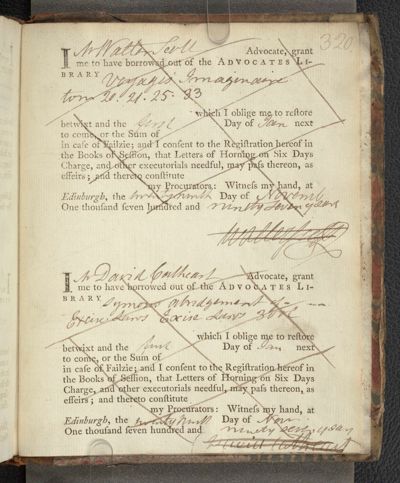 320
I Mr Walter Scott Advocate, grant
me to have borrowed out of the ADVOCATES LI-
BRARY Voyages Imaginaire
tom 20. 21. 25. 33
which I oblige me to reſtore
betwixt and the first Day of Jan next
to come, or the Sum of
in caſe of Failzie; and I conſent to the Regiſtration hereof in
the Books of Seſſion, that Letters of Horning on Six Days
Charge, and other executorials needful, may paſs thereon, as
effeirs; and thereto conſtitute
my Procurators: Witneſs my hand, at
Edinburgh, the Day of Novemb
One thouſand ſeven hundred and ninety seven years
Walter Scott
I Mr David Cathcart Advocate, grant
me to have borrowed out of the ADVOCATES LI-
BRARY Symons abridgement of
Excise Laws Excise Laws
which I oblige me to reſtore
betwixt and the first Day of Jan next
to come, or the Sum of
in caſe of Failzie; and I conſent to the Regiſtration hereof in
the Books of Seſſion, that Letters of Horning on Six Days
Charge, and other executorials needful, may paſs thereon, as
effeirs; and thereto conſtitute
my Procurators: Witneſs my hand, at
Edinburgh, the Day of Nov
One thouſand ſeven hundred and ninety seven
Cathcart